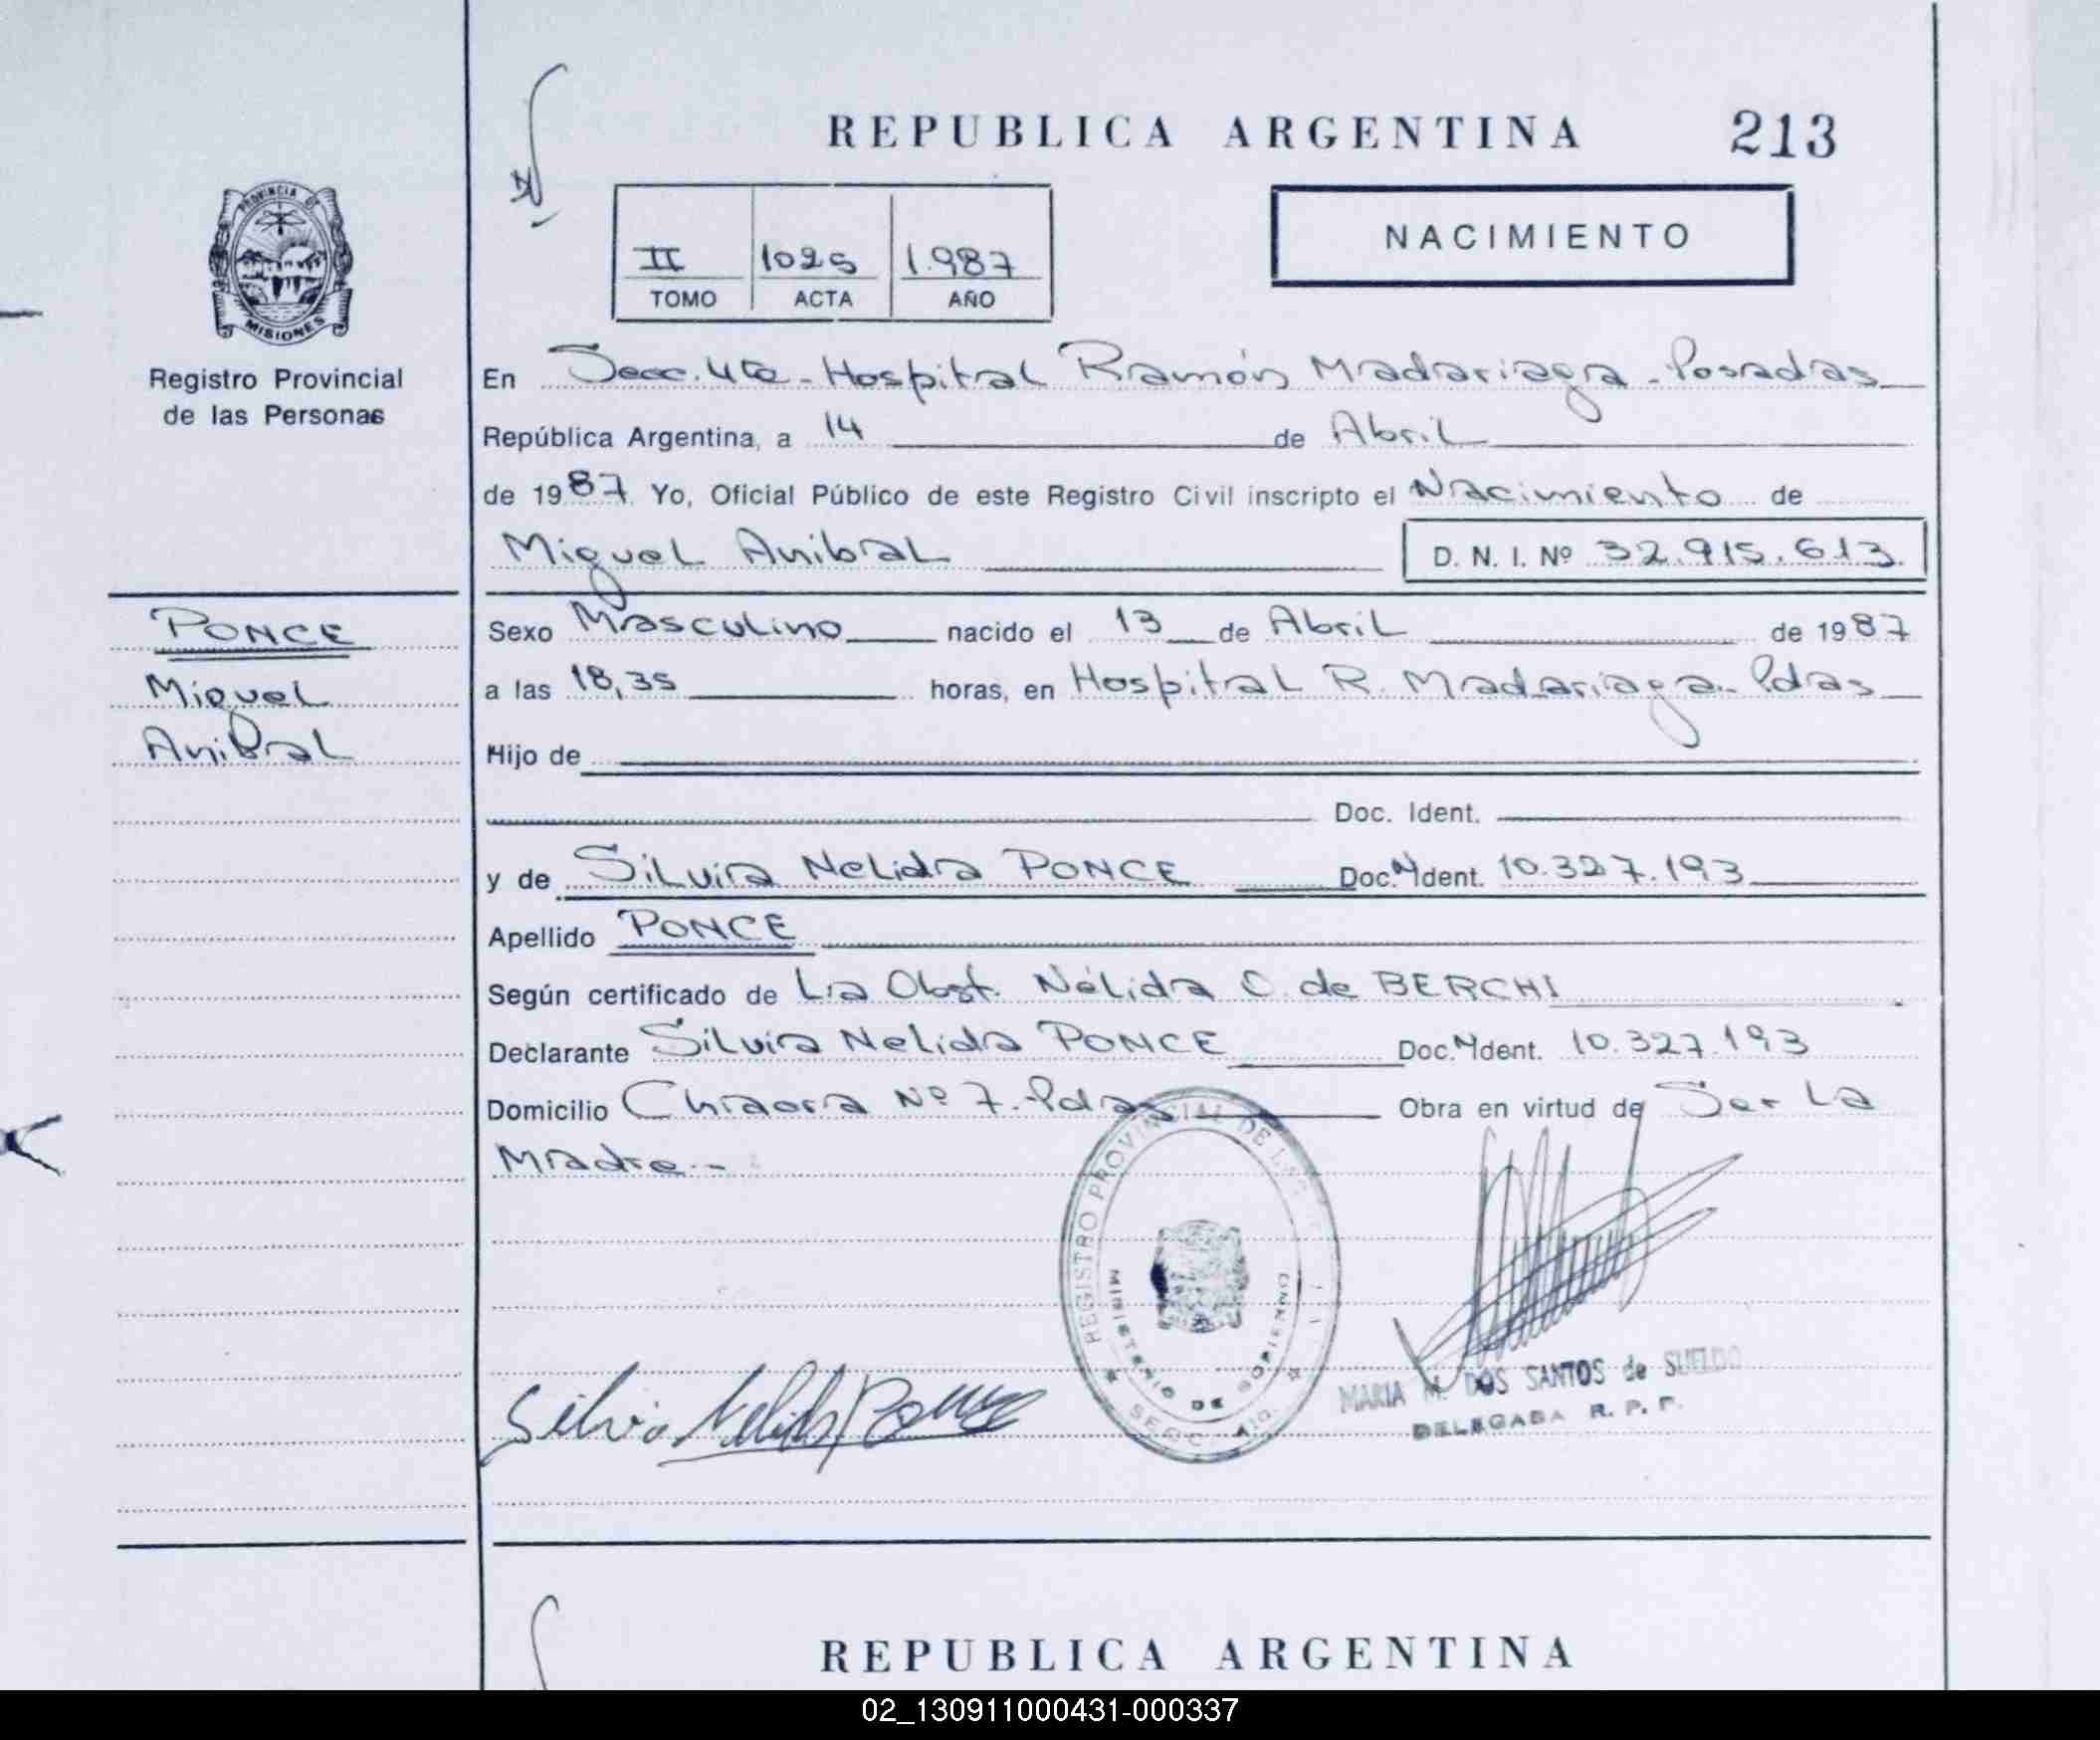 REPUBLICA ARGENTINA 213
PROVINCIA DE
MISIONES
Registro Provincial
de las Personas
II 1025 1.987
TOMO ACTA AÑO
NACIMIENTO
En Secc. 4ta - Hospital Ramón Madariaga - Posadas
República Argentina, a 14 de Abril
de 1987 Yo, Oficial Público de este Registro Civil inscripto el Nacimiento de
Miguel Anibal D. N. I. Nº 32.915.613
PONCE
Miguel
Anibal
Sexo Masculino nacido el 13 de Abril de 1987
a las 18,35 horas, en Hospital R. Madariaga - Pdas
Hijo de
Doc. Ident.
y de Silvia Nelida PONCE Doc. Ident. 10.327.193
Apellido PONCE
Según certificado de La Obst. Nélida C. de BERCHI
Declarante Silvia Nelida PONCE Doc. Ident. 10.327.193
Domicilio Nº 7 - Pdas Obra en virtud de Ser La
Madre -
REGISTRO PROVINCIAL DE LAS
MINISTERIO DE GOBIERNO
Silvia Nelida Ponce
MARIA M. DOS SANTOS de SUELDO
DELEGADA R. P. P.
REPUBLICA ARGENTINA
02_130911000431-000337